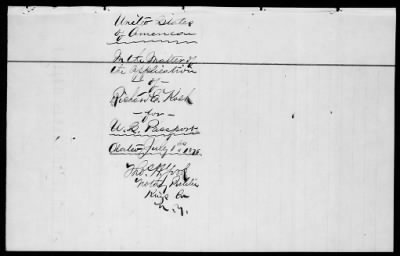 United States
of American
In the Matter of
the application
of
Richard C. Koch
for
U.S. Passport
Dated July 1st 1878.
Notary Public
Kings Co
N.Y.